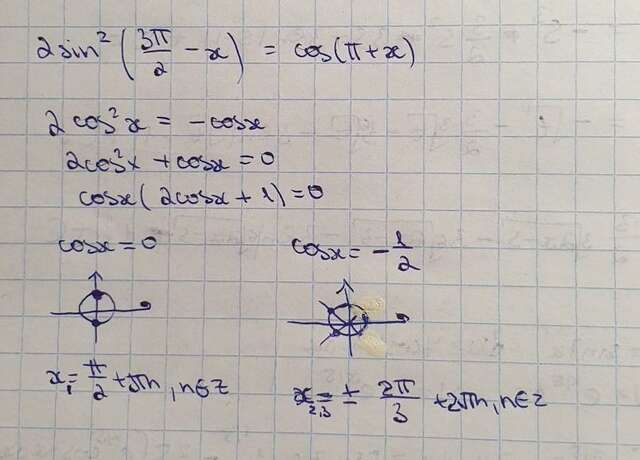 2sin²(3π/2 - x) = cos(π + x)
2cos²x = -cosx
2cos²x + cosx = 0
cosx(2cosx + 1) = 0
cosx = 0    cosx = -1/2
x₁ = π/2 + πn, n∈Z    x₂,₃ = ± 2π/3 + 2πn, n∈Z